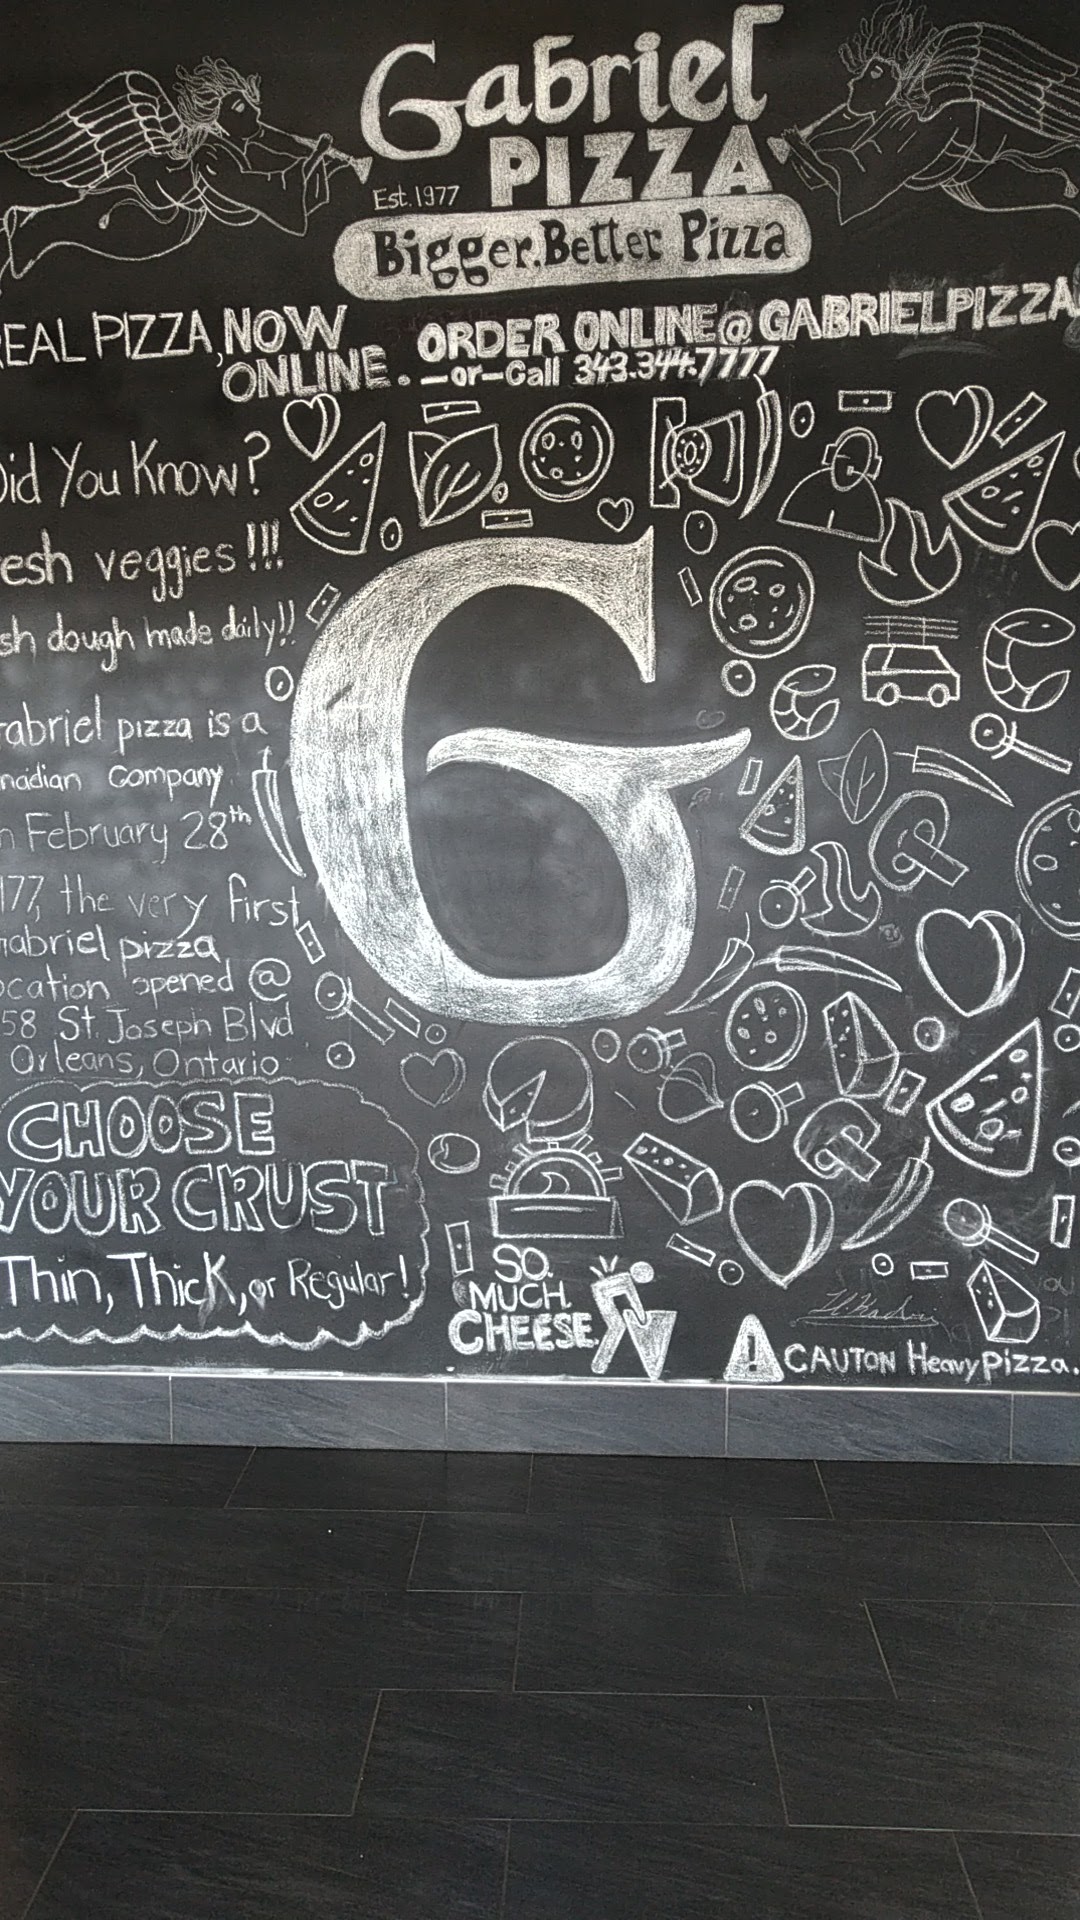 Gabriel
PIZZA
Est. 1977
Bigger. Better Pizza
REAL PIZZA, NOW
ONLINE.
ORDER ONLINE @ GABRIELPIZZA
-or- Call 343.344.7777
Did You Know?
esh veggies!!!
sh dough made daily!!
abriel pizza is a
nadian Company
n February 28th
177, the very first
abriel pizza
ocation opened @
58 St. Joseph Blvd
Orleans, Ontario
CHOOSE
YOUR CRUST
Thin, Thick, or Regular!
G
SO.
MUCH.
CHEESE.
! CAUTON Heavy Pizza.